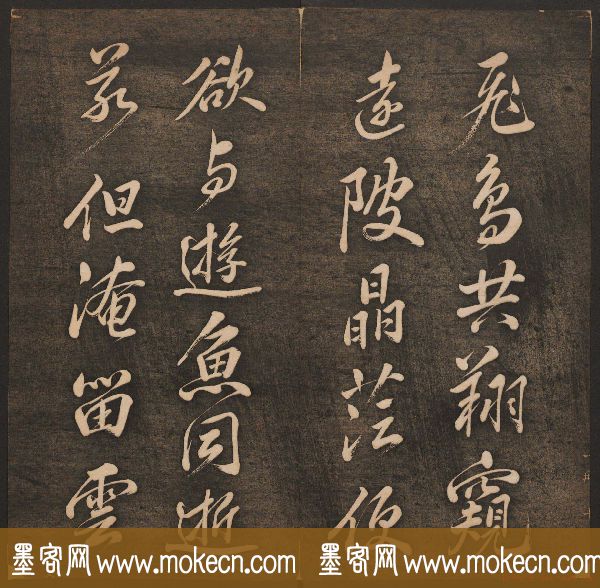 飛鳥共翔窺
遠陂晶茫便
欲与遊魚同逝
若但淹留雲
墨客网 www.mokecn.com 墨客网 www.mokecn.com